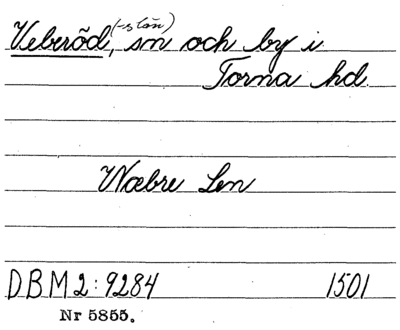 Veberöd, (-stån) sn och by i
Torna hd.
Wæbre Len
DBM 2:9284 1501
Nr 5855.